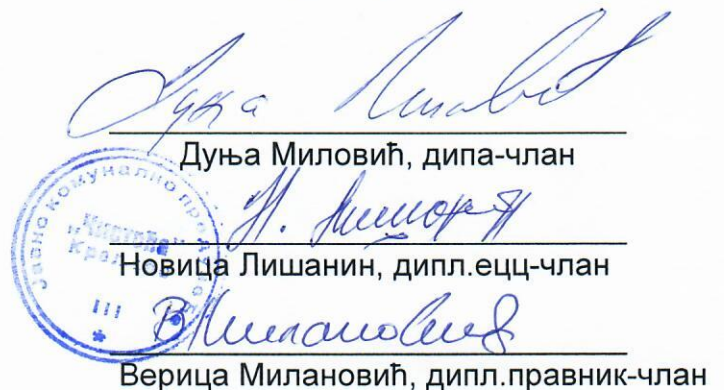 Дуња Миловић, дипа-члан
Јавно комунално предузеће
"Чистоћа"
Краљево
III
Новица Лишанин, дипл.ецц-члан
Верица Милановић, дипл.правник-члан